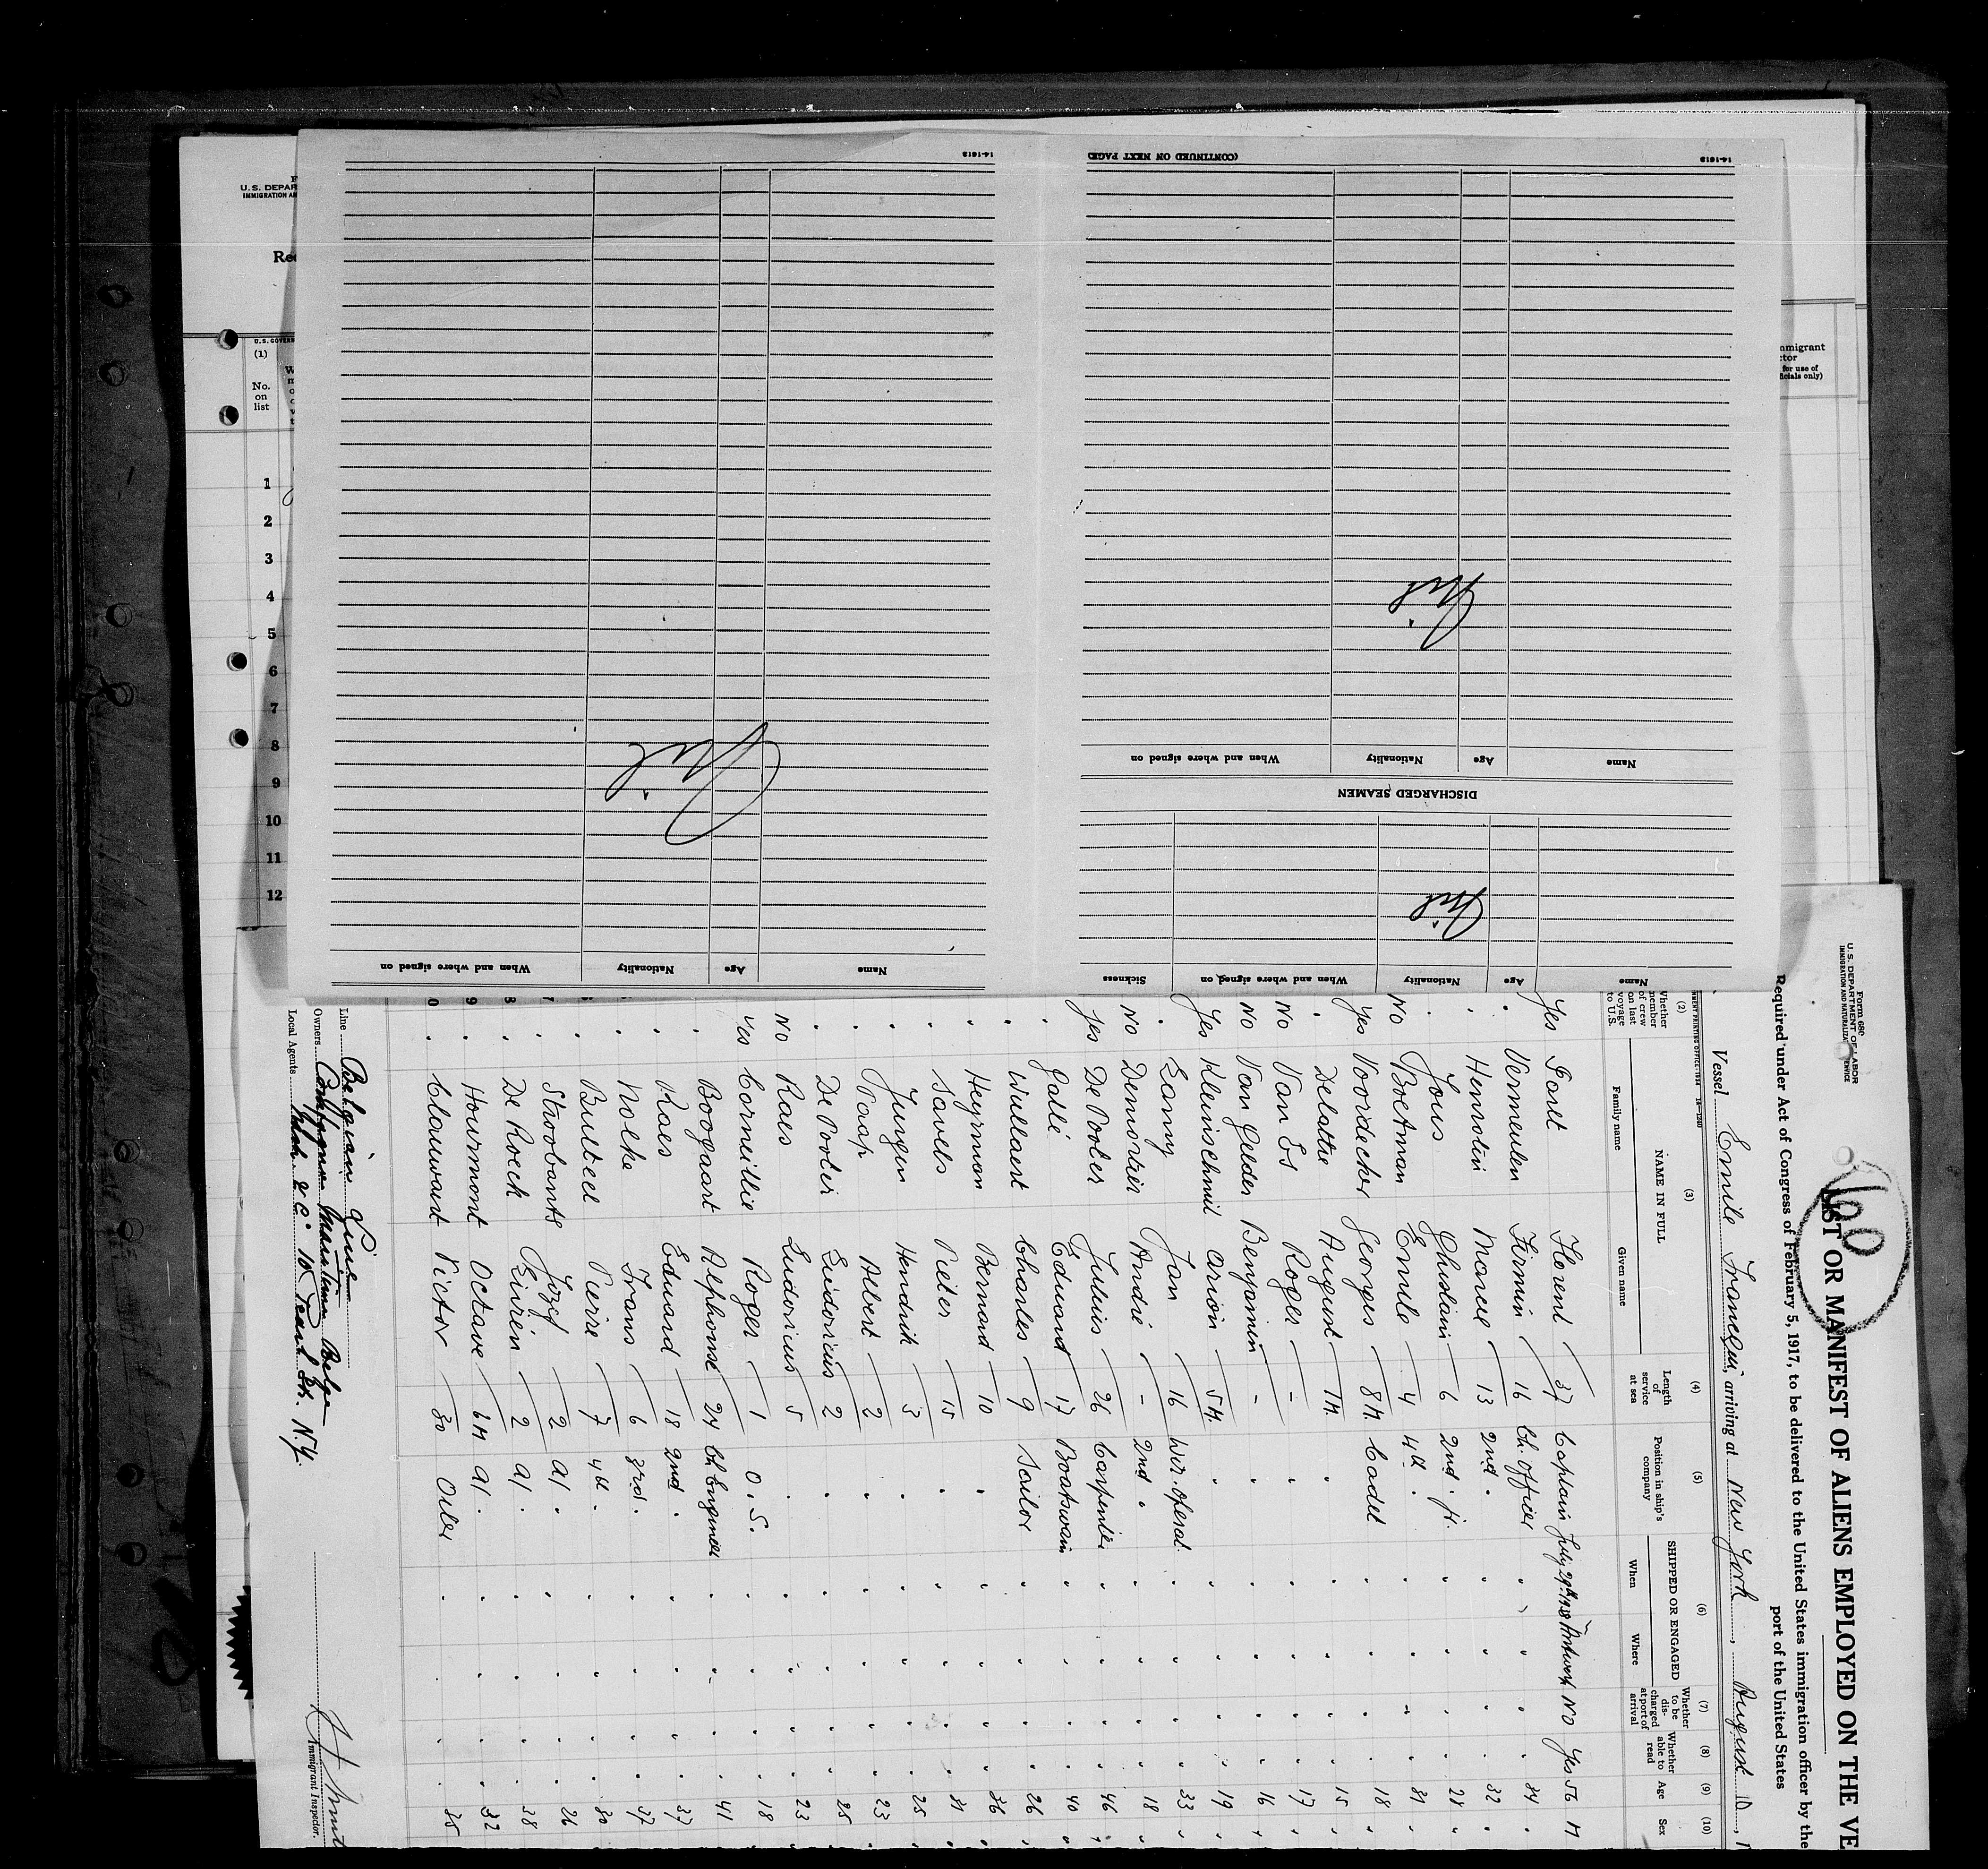 U.S. GOVERN
(1)
No.
on
list
1
2
3
4
5
6
7
8
9
10
11
12
nmigrant
ctor
for use of
ficials only)
14-1613
(CONTINUED ON NEXT PAGE)
14-1613
Nil
Nil
Nil
Name Age Nationality When and where signed on
DISCHARGED SEAMEN
Name Age Nationality When and where signed on
Name Age Nationality When and where signed on Sickness
Form 680
U.S. DEPARTMENT OF LABOR
160
LIST OR MANIFEST OF ALIENS EMPLOYED ON THE VE
Required under Act of Congress of February 5, 1917, to be delivered to the United States immigration officer by the
port of the United States
Vessel Emile Francqui, arriving at New York, August 10, 1
(2) (3) (4) (5) (6) (7) (8) (9) (10)
Whether member of crew on last voyage to U.S.
NAME IN FULL
Family name Given name
Length of service at sea
Position in ship's company
SHIPPED OR ENGAGED
When Where
Whether to be discharged at port of arrival
Whether able to read
Age Sex
Yes Florent 37 Captain Antwerp No Yes 56 M
" Vermeulen Firmin 16 Ch. officer " " " " 34 "
" Marcel 13 2nd " " " " " 32 "
" Ghislain 6 2nd " " " " 28 "
No Boetman Emile 4 4th " " " " " 31 "
Yes Voordecker Georges 8M. Cadet " " " " 18 "
" Delattre August 1M. " " " " " 15 "
No Van Es Roger - " " " " " 17 "
No Van Gelder Benjamin - " " " " " 16 "
Yes Kleinschmit Arion 5M. " " " " " 19 "
" Lanny Jan 16 Wir. operat. " " " " 33 "
No Demortier André - 2nd " " " " " 18 "
Yes De Pooter Julius 26 Carpenter " " " " 46 "
" Gallé Eduard 17 Boatswain " " " " 40 "
" Wullaert Charles 9 Sailor " " " " 26 "
" Heyrman Bernard 10 " " " " " 36 "
" Savels Pieter 15 " " " " " 31 "
" Jungen Hendrik 3 " " " " " 25 "
" Albert 2 " " " " " 23 "
" De Pooter Ludovicus 2 " " " " " 25 "
No Raes Ludovicus 5 " " " " " 23 "
Yes Corneillie Roger 1 O.S. " " " " 18 "
Boogaart Alphonse 24 Ch. Engineer " " " " 41 "
" Raes Eduard 18 2nd " " " " " 37 "
" Nolke Frans 6 3rd. " " " " " 37 "
" Bulteel Pierre 7 4th " " " " " 30 "
" Stroobants Jozef 2 A1 " " " " " 26 "
" De Roeck 2 A1 " " " " " 38 "
" Hourmont Octave 6M A1 " " " " " 32 "
" Clauwaert Victor 30 Oiler " " " " 35
Line Belgian Line
Owners Compagnie Maritime Belge
Local Agents
Pearl Str. N.Y.
Immigrant Inspector.